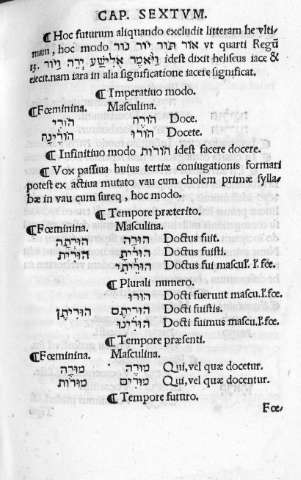 CAP. SEXTVM.
¶ Hoc futurum aliquando excludit litteram he vlti-
mam, hoc modo אור תור יור נור vt quarti Regũ
13. וַיֹּאמֶר אֱלִישָׁע יְרֵה וַיּוֹר idest dixit heliseus iace &
iecit. nam iara in alia significatione iacere significat.
¶ Imperatiuo modo.
¶ Fœminina. Masculina.
הוֹרִי הוֹרֵה Doce.
הוֹרֶינָה הוֹרוּ Docete.
¶ Infinitiuo modo הוֹרוֹת idest facere docere.
¶ Vox passiua huius tertiæ coniugationis formari
potest ex actiua mutato vau cum cholem primæ sylla-
bæ in vau cum sureq, hoc modo.
¶ Tempore præterito.
¶ Fœminina. Masculina.
הוּרְתָה הוּרָה Doctus fuit.
הוּרִית הוּרִיתָ Doctus fuisti.
הוּרֵיתִי Doctus fui mascul. l. fœ.
¶ Plurali numero.
הוּרוּ Docti fuerunt mascu. l. fœ.
הוּרִיתֶן הוּרִיתֶם Docti fuistis.
הוּרִינוּ Docti fuimus mascu. l. fœ.
¶ Tempore præsenti.
¶ Fœminina. Masculina.
מוּרָה מוּרֶה Qui, vel quæ docetur.
מוּרוֹת מוּרִים Qui, vel quæ docentur.
¶ Tempore futuro.
Fœ-